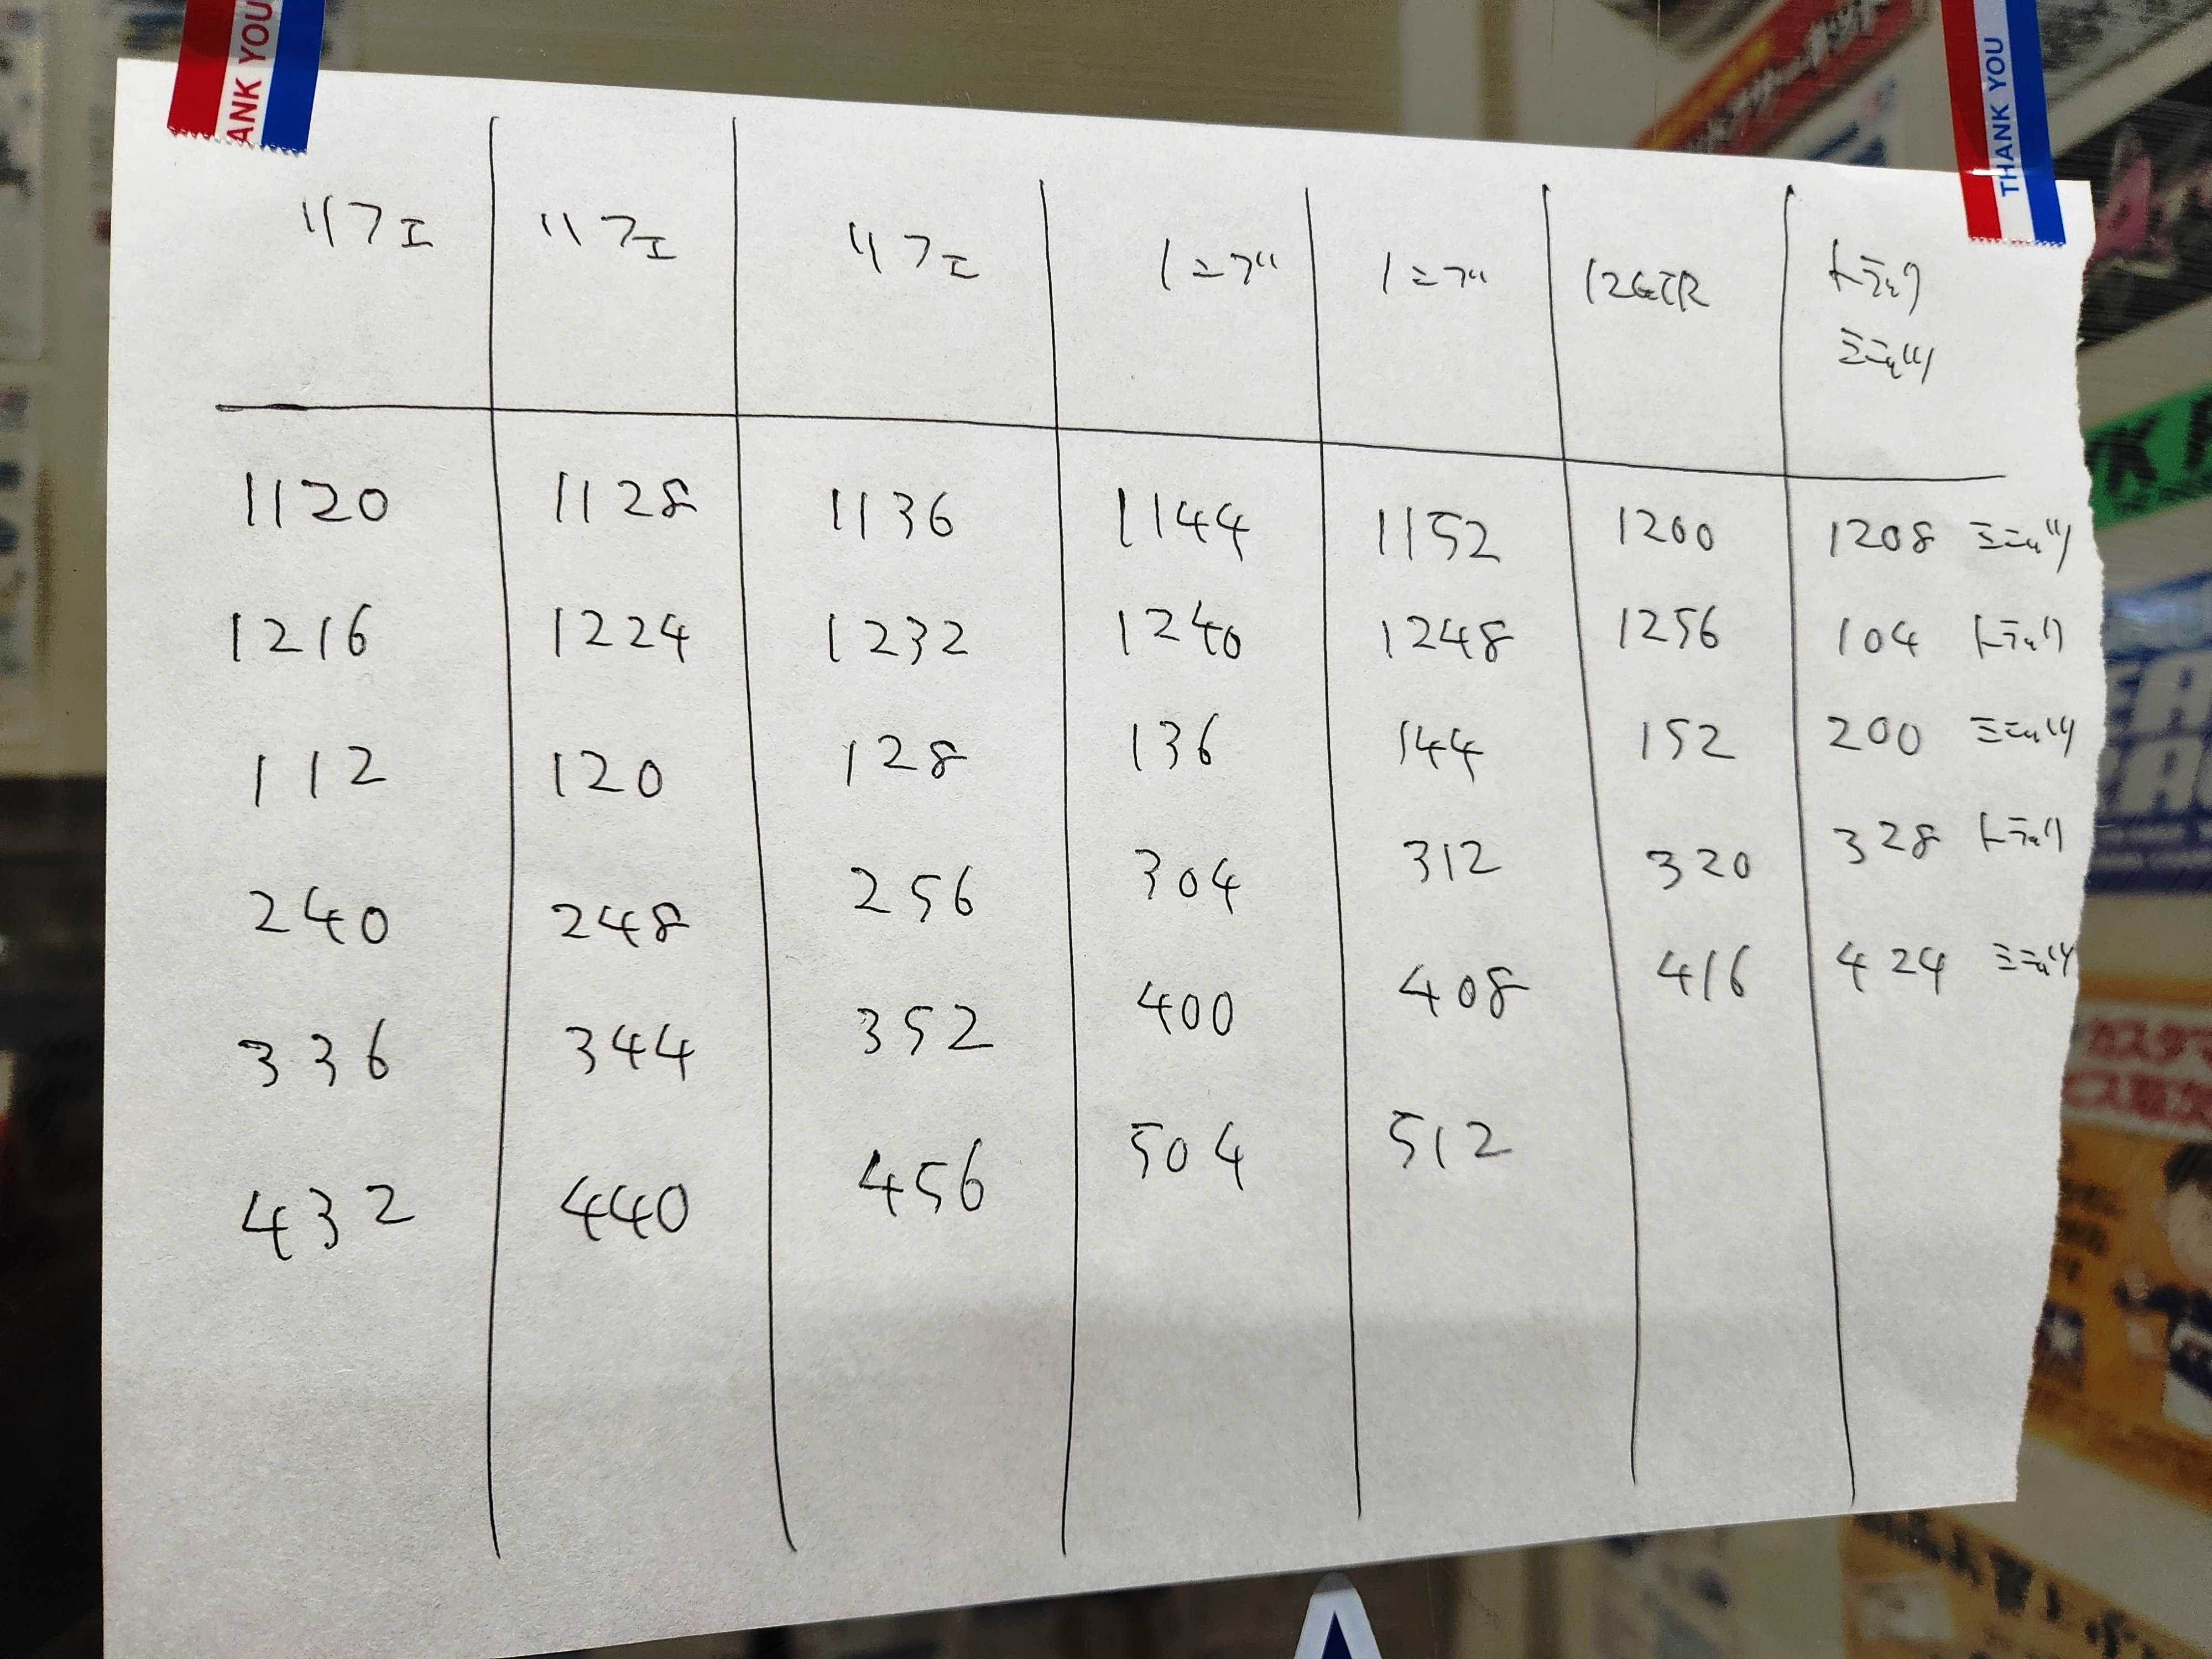 THANK YOU
ANK YOU
リフェ リフェ リフェ 1ニブ 1ニブ 12GTR トラック
ミニッツ
1120 1128 1136 1144 1152 1200 1208 ミニッツ
1216 1224 1232 1240 1248 1256 104 トラック
112 120 128 136 144 152 200 ミニッツ
240 248 256 304 312 320 328 トラック
336 344 352 400 408 416 424 ミニッツ
432 440 456 504 512